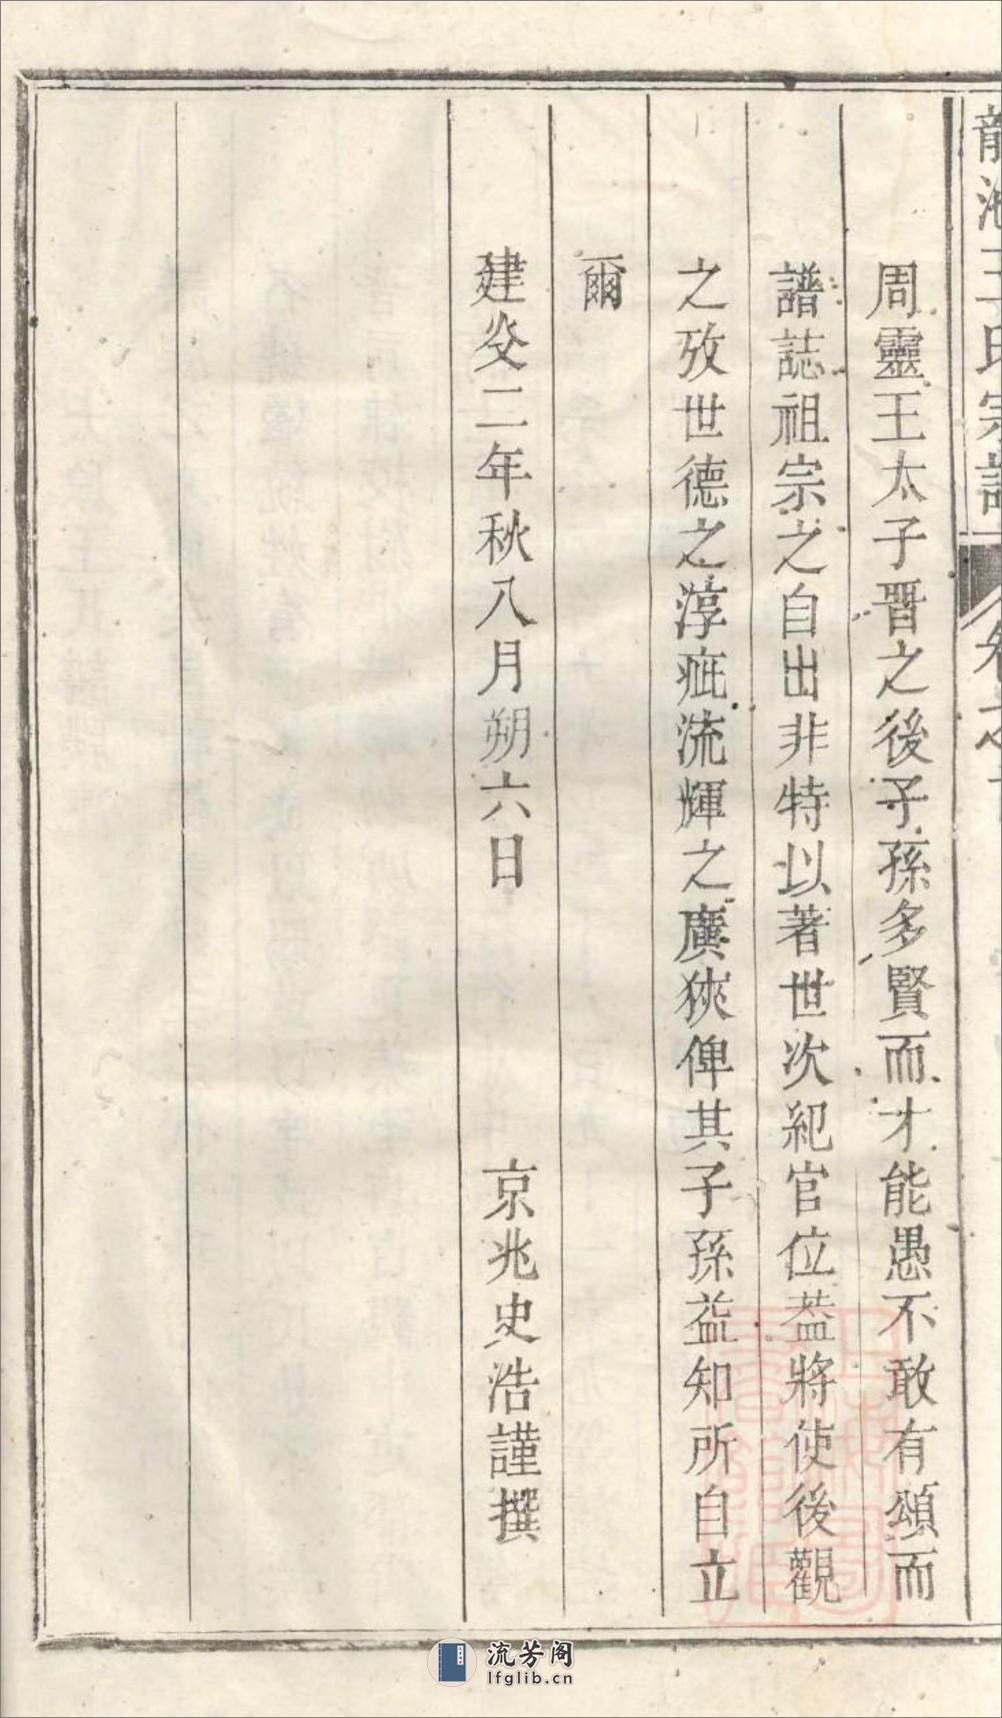 龍池王氏宗譜 卷之一
周靈王太子晋之後子孫多賢而才能愚不敢有頌而
譜誌祖宗之自出非特以著世次紀官位葢將使後觀
之攷世德之淳疵流輝之廣狹俾其子孫益知所自立
爾
建炎二年秋八月朔六日 京兆史浩謹撰
流芳阁
lfglib.cn